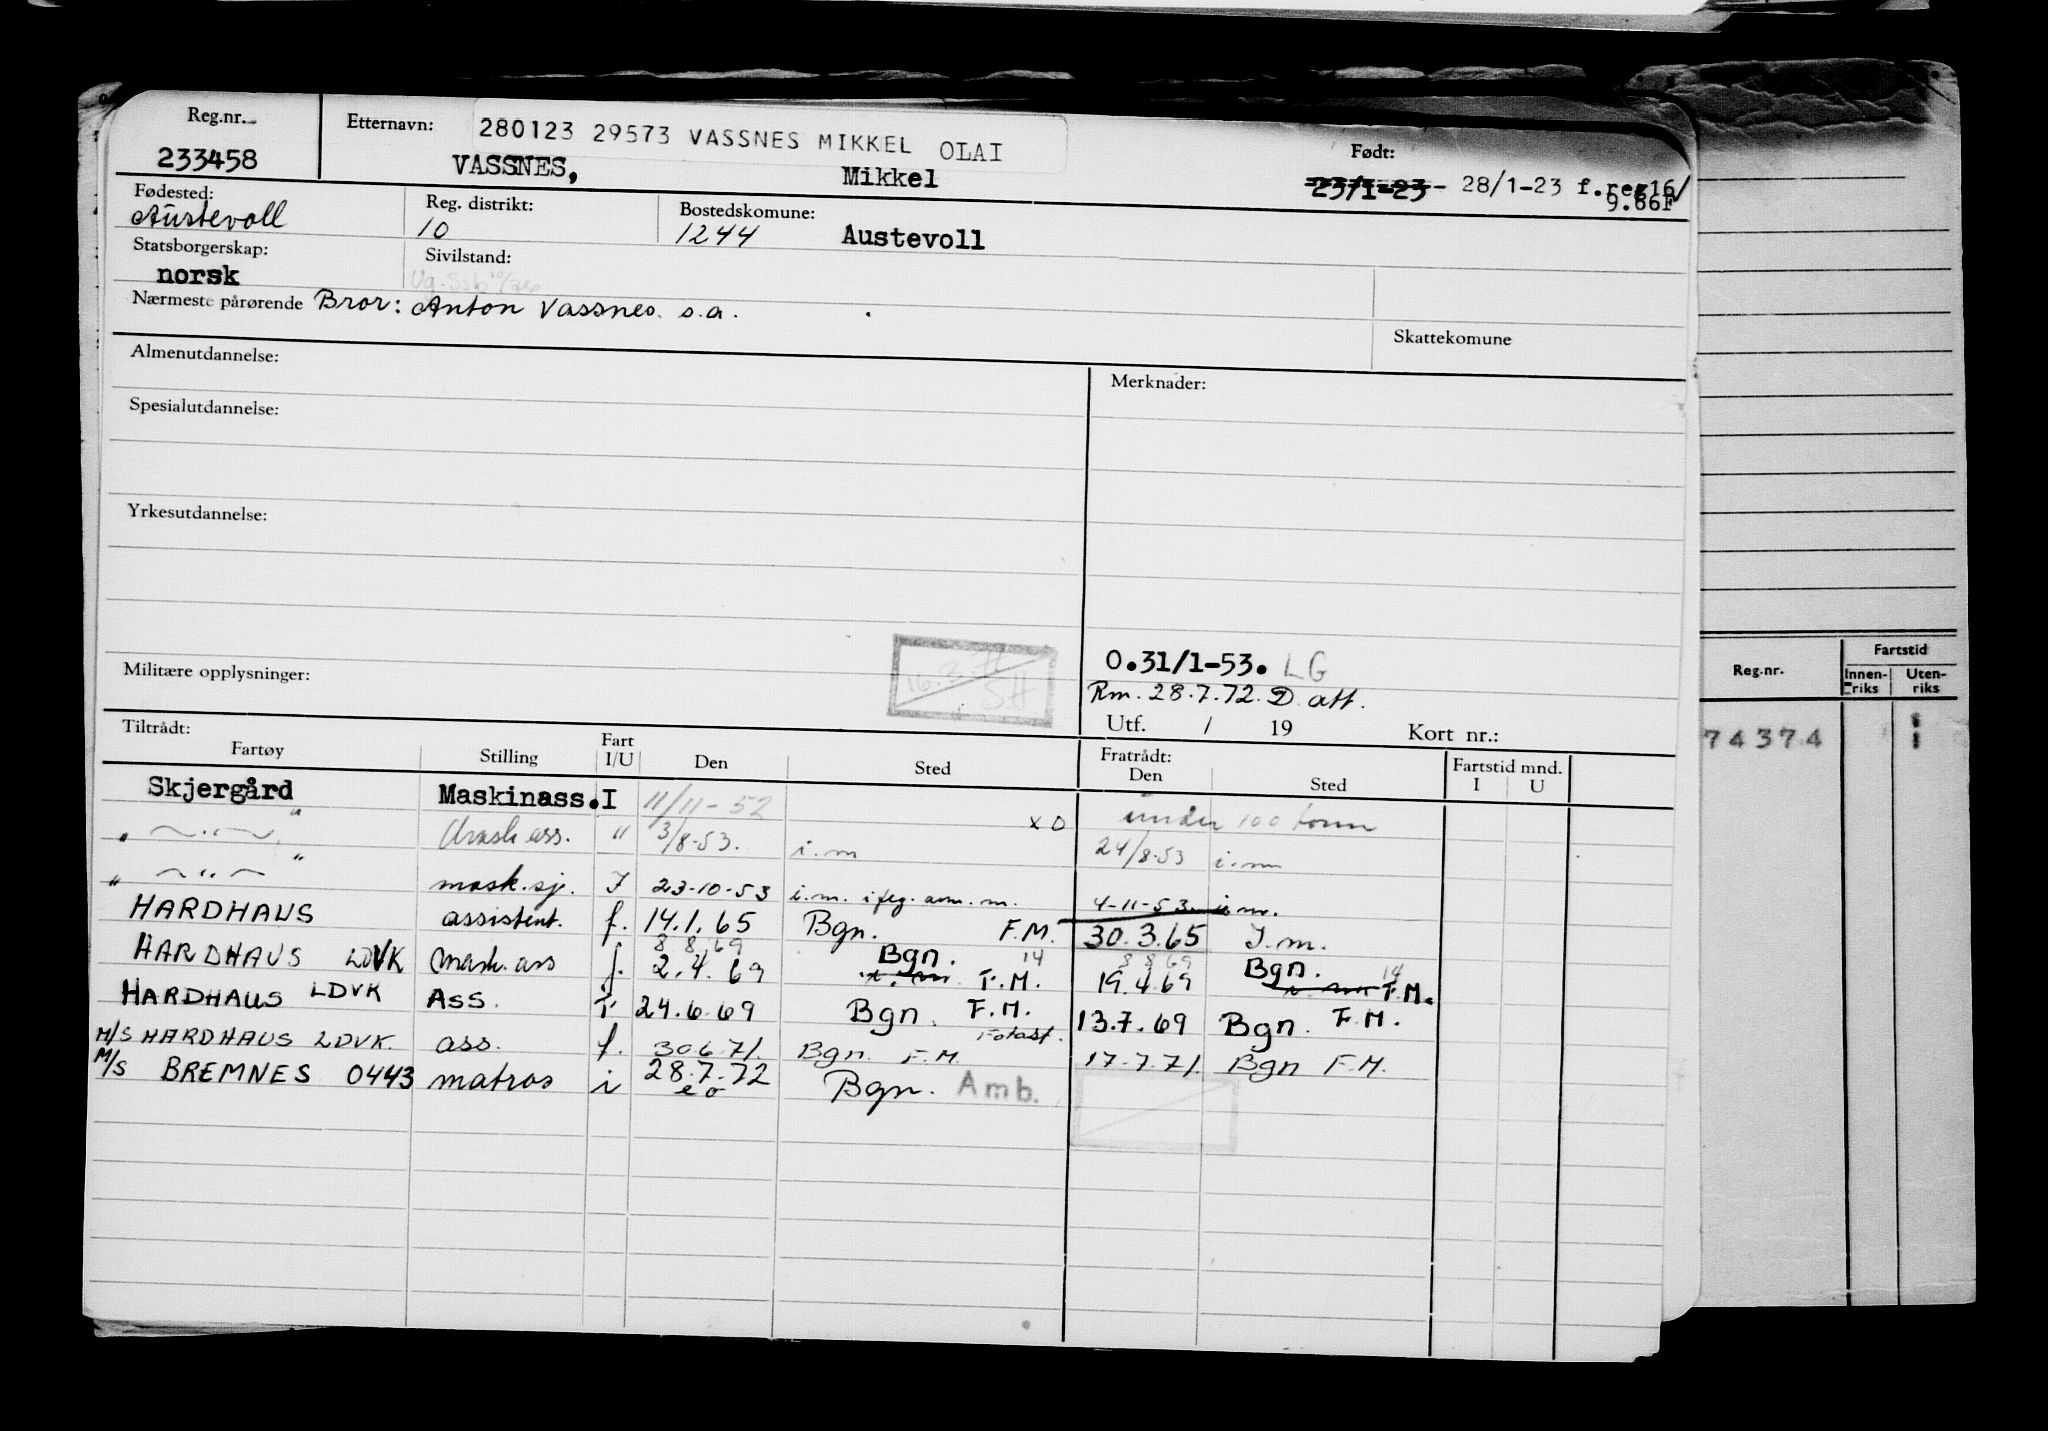 Reg.nr. Etternavn: 280123 29573 VASSNES MIKKEL OLAI Født:
233458 VASSNES, Mikkel 23/1-23 - 28/1-23 f.reg16/
9.66F
Fødested: Reg. distrikt: Bostedskomune:
Austevoll 10 1244 Austevoll
Statsborgerskap: Sivilstand:
norsk
Nærmeste pårørende Bror: Anton Vassnes. s.a.
Skattekomune
Almenutdannelse: Merknader:
Spesialutdannelse:
Yrkesutdannelse:
O.31/1-53. LG
Militære opplysninger: 16.3 SH Rm. 28.7.72. D. att.
Utf. / 19 Kort nr.:
Tiltrådt: Fratrådt: Fartstid mnd.
Fartøy Stilling Fart I/U Den Sted Den Sted I U
Skjergård Maskinass. I 11/11-52 x O under 100 tonn
" — " — Mask ass. " 3/8-53. i.m 24/8-53 i.m
" — " — mask.sj. I 23-10-53 i.m. 4-11-53 i.m.
HARDHAUS assistent. f. 14.1.65 Bgn. F.M. 30.3.65 I.m.
8 8 69 14 8 8 69 14
HARDHAUS LDVK Mask.ass f. 2.4.69 Bgn. i.m. F.M. 19.4.69 Bgn. F.M.
HARDHAUS LDVK Ass. F 24.6.69 Bgn. F.M. 13.7.69 Bgn. F.M.
M/S HARDHAUS LDVK. ass. f. 30.6.71. Bgn. F.M. 17-7.71. Bgn F.M.
M/S BREMNES 0443 matros i 28.7.72 Bgn. Amb.
e o
Reg.nr. Fartstid
Innen-riks Uten-riks
74374